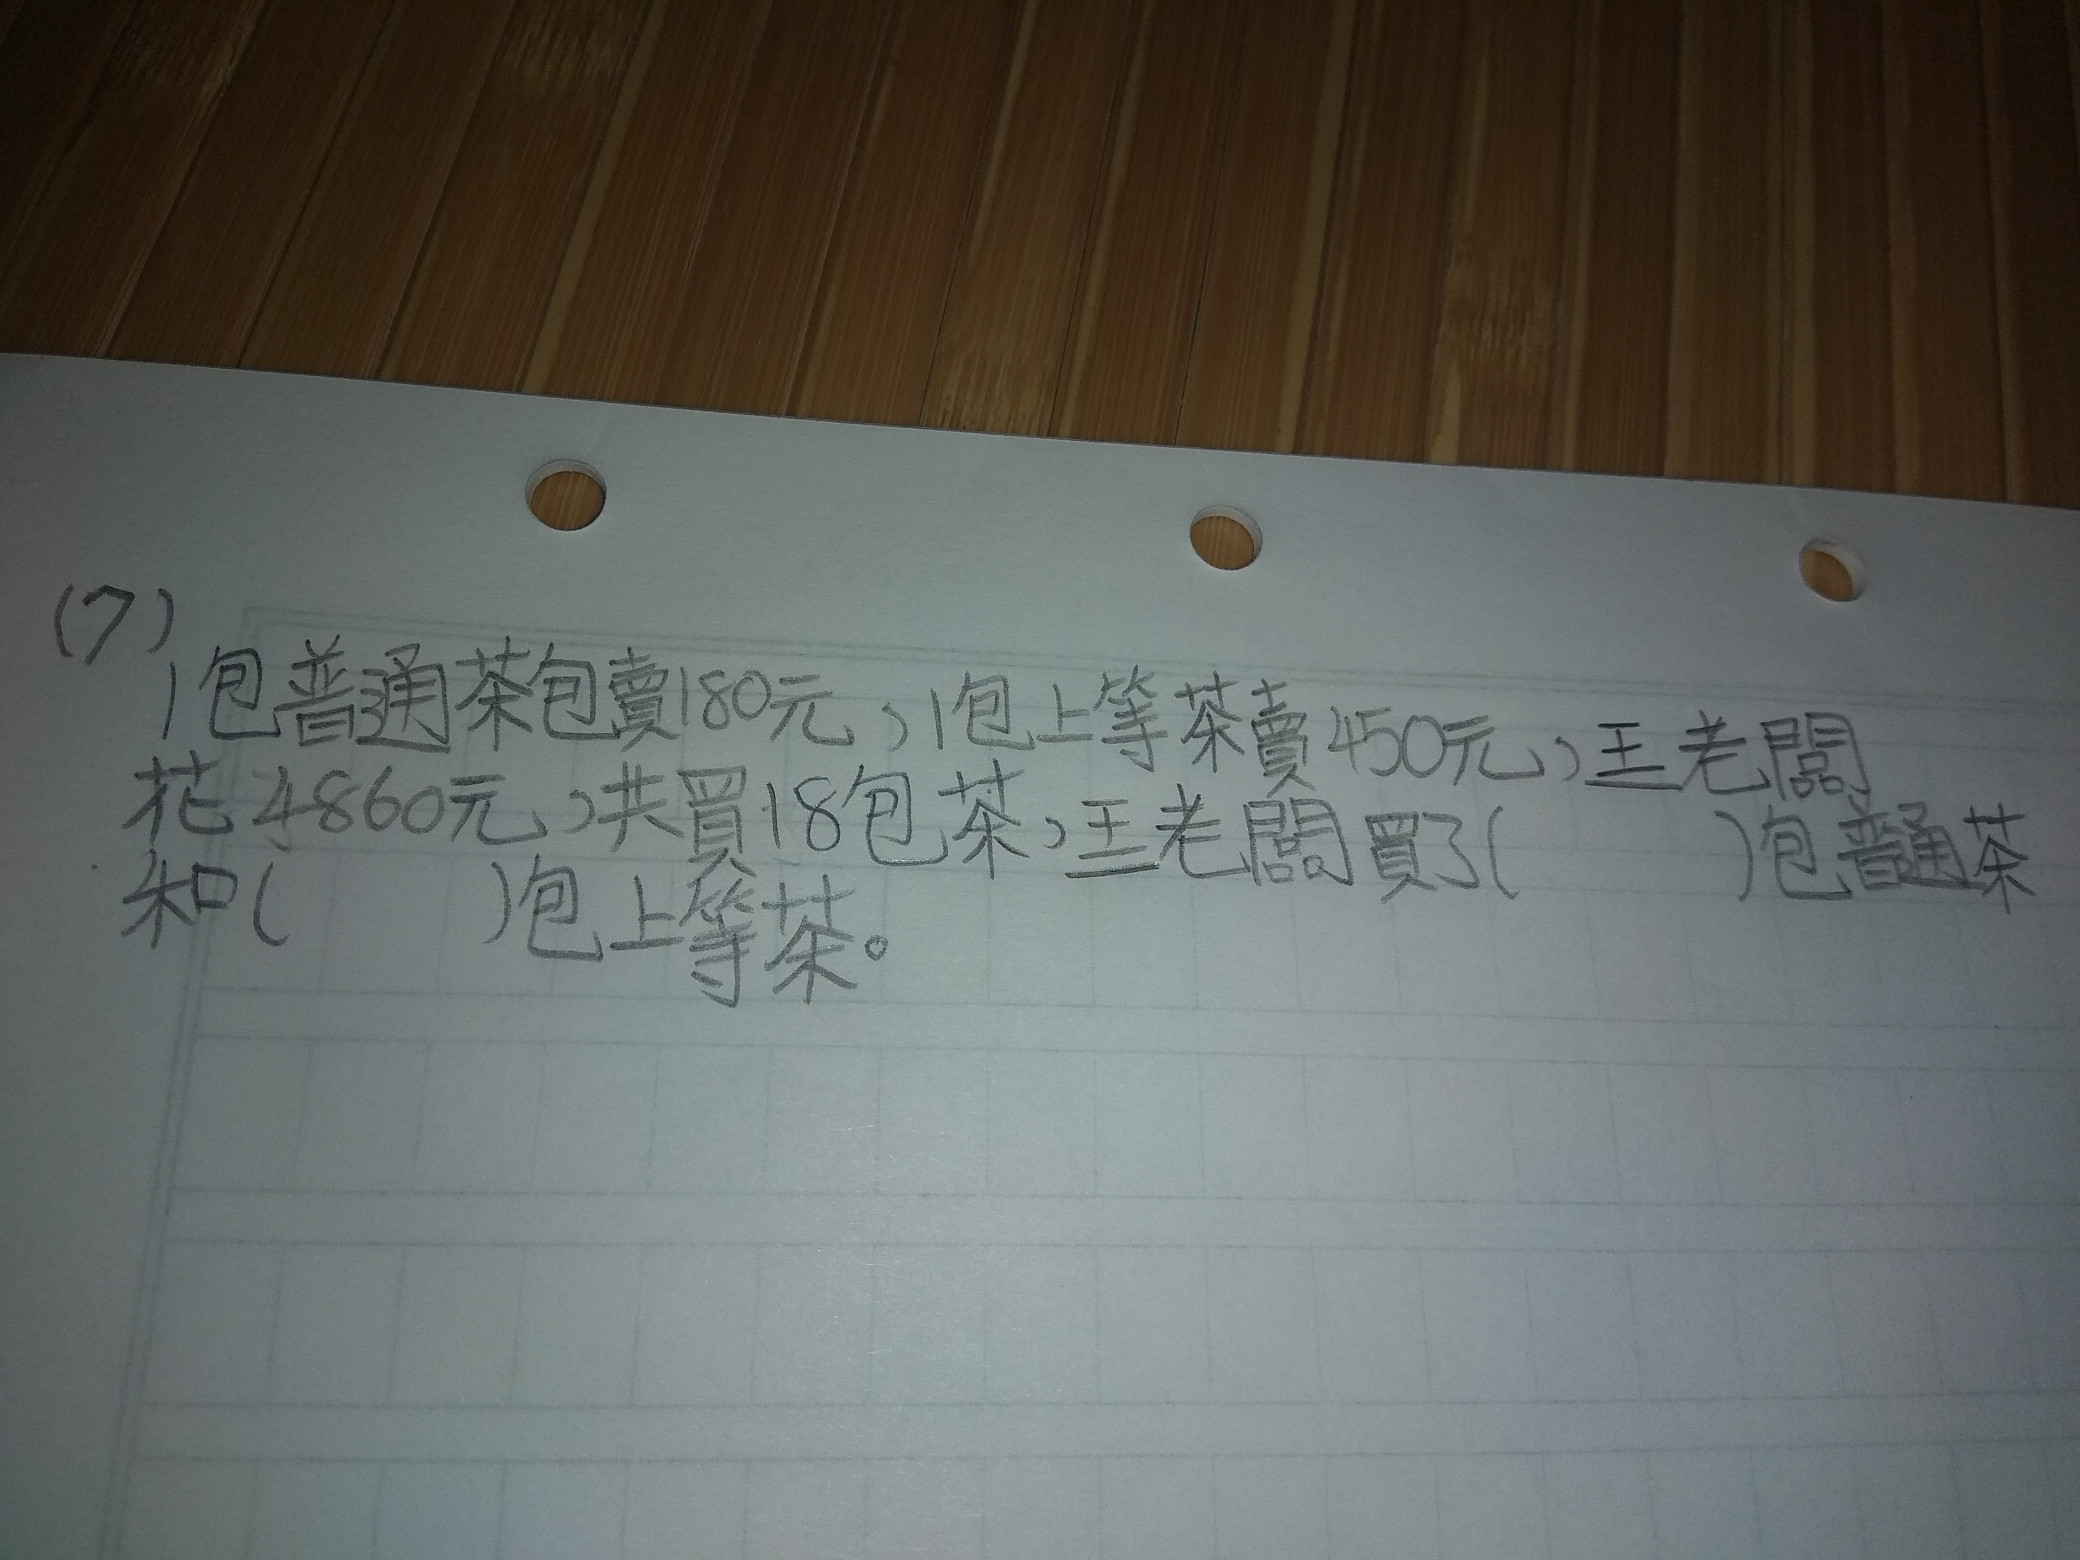 (7)
1包普通茶包賣180元，1包上等茶賣450元，王老闆
花4860元，共買18包茶，王老闆買了(　　)包普通茶
和(　　)包上等茶。